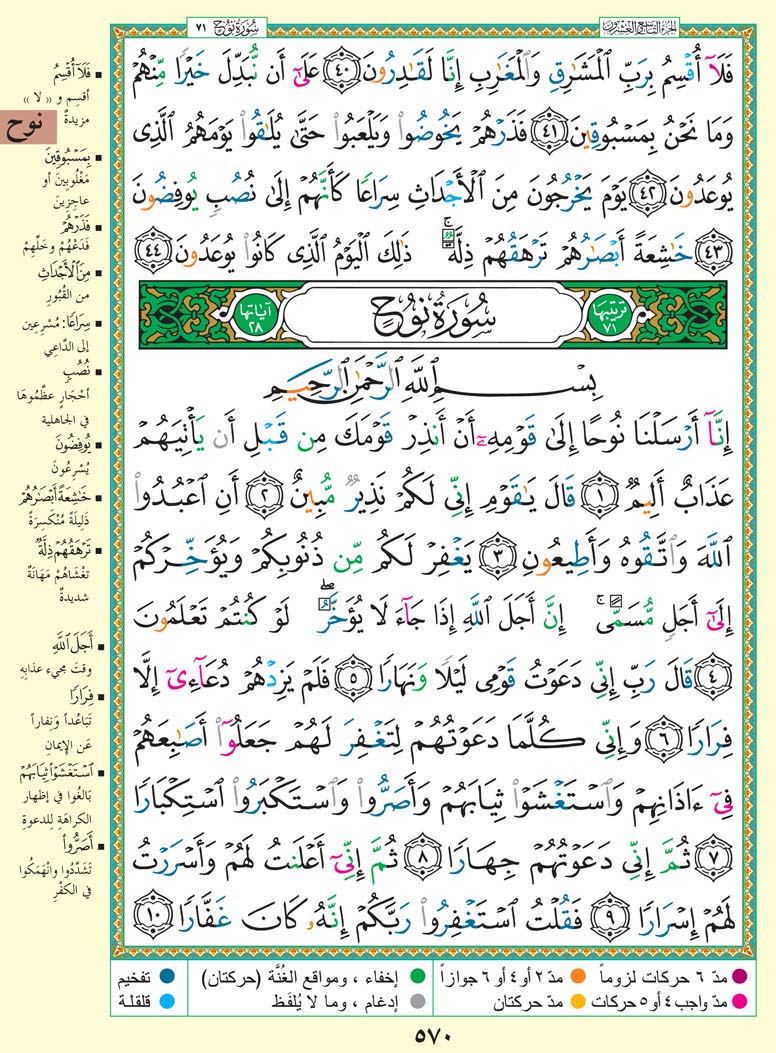 سُورَةُ نُوحٍ ٧١
الجُزْءُ التَّاسِعُ وَالعِشْرُونَ
فَلَآ أُقْسِمُ بِرَبِّ ٱلْمَشَٰرِقِ وَٱلْمَغَٰرِبِ إِنَّا لَقَٰدِرُونَ ﴿٤٠﴾ عَلَىٰٓ أَن نُّبَدِّلَ خَيْرًا مِّنْهُمْ
وَمَا نَحْنُ بِمَسْبُوقِينَ ﴿٤١﴾ فَذَرْهُمْ يَخُوضُوا۟ وَيَلْعَبُوا۟ حَتَّىٰ يُلَٰقُوا۟ يَوْمَهُمُ ٱلَّذِى
يُوعَدُونَ ﴿٤٢﴾ يَوْمَ يَخْرُجُونَ مِنَ ٱلْأَجْدَاثِ سِرَاعًا كَأَنَّهُمْ إِلَىٰ نُصُبٍ يُوفِضُونَ
﴿٤٣﴾ خَٰشِعَةً أَبْصَٰرُهُمْ تَرْهَقُهُمْ ذِلَّةٌ ۚ ذَٰلِكَ ٱلْيَوْمُ ٱلَّذِى كَانُوا۟ يُوعَدُونَ ﴿٤٤﴾
ترتيبها ٧١ سُورَةُ نُوحٍ آياتها ٢٨
بِسْمِ ٱللَّهِ ٱلرَّحْمَٰنِ ٱلرَّحِيمِ
إِنَّآ أَرْسَلْنَا نُوحًا إِلَىٰ قَوْمِهِۦٓ أَنْ أَنذِرْ قَوْمَكَ مِن قَبْلِ أَن يَأْتِيَهُمْ
عَذَابٌ أَلِيمٌ ﴿١﴾ قَالَ يَٰقَوْمِ إِنِّى لَكُمْ نَذِيرٌ مُّبِينٌ ﴿٢﴾ أَنِ ٱعْبُدُوا۟
ٱللَّهَ وَٱتَّقُوهُ وَأَطِيعُونِ ﴿٣﴾ يَغْفِرْ لَكُم مِّن ذُنُوبِكُمْ وَيُؤَخِّرْكُمْ
إِلَىٰٓ أَجَلٍ مُّسَمًّى ۚ إِنَّ أَجَلَ ٱللَّهِ إِذَا جَآءَ لَا يُؤَخَّرُ ۖ لَوْ كُنتُمْ تَعْلَمُونَ
﴿٤﴾ قَالَ رَبِّ إِنِّى دَعَوْتُ قَوْمِى لَيْلًا وَنَهَارًا ﴿٥﴾ فَلَمْ يَزِدْهُمْ دُعَآءِىٓ إِلَّا
فِرَارًا ﴿٦﴾ وَإِنِّى كُلَّمَا دَعَوْتُهُمْ لِتَغْفِرَ لَهُمْ جَعَلُوٓا۟ أَصَٰبِعَهُمْ
فِىٓ ءَاذَانِهِمْ وَٱسْتَغْشَوْا۟ ثِيَابَهُمْ وَأَصَرُّوا۟ وَٱسْتَكْبَرُوا۟ ٱسْتِكْبَارًا
﴿٧﴾ ثُمَّ إِنِّى دَعَوْتُهُمْ جِهَارًا ﴿٨﴾ ثُمَّ إِنِّىٓ أَعْلَنتُ لَهُمْ وَأَسْرَرْتُ
لَهُمْ إِسْرَارًا ﴿٩﴾ فَقُلْتُ ٱسْتَغْفِرُوا۟ رَبَّكُمْ إِنَّهُۥ كَانَ غَفَّارًا ﴿١٠﴾
نوح
▪ فَلَآ أُقْسِمُ
أقسِم و « لا »
مزيدةٌ
▪ بِمَسْبُوقِينَ
مَغْلُوبِينَ أو
عاجِزِينَ
▪ فَذَرْهُمْ
فَدَعْهُمْ وخَلِّهِمْ
▪ مِنَ ٱلْأَجْدَاثِ
من القُبُورِ
▪ سِرَاعًا: مُسْرِعين
إلى الدَّاعِي
▪ نُصُبٍ
أحْجَارٍ عظَّمُوهَا
في الجاهلية
▪ يُوفِضُونَ
يُسْرِعُونَ
▪ خَٰشِعَةً أَبْصَٰرُهُمْ
ذَلِيلَةً مُنْكَسِرَةً
▪ تَرْهَقُهُمْ ذِلَّةٌ
تغْشَاهُمْ مَهَانَةٌ
شديدةٌ
▪ أَجَلَ ٱللَّهِ
وقتَ مجيء عذابِهِ
▪ فِرَارًا
تَبَاعُداً وَنِفاراً
عَن الإيمانِ
▪ ٱسْتَغْشَوْا۟ ثِيَابَهُمْ
بَالَغُوا في إظهار
الكراهَةِ لِلدعوةِ
▪ أَصَرُّوا۟
تَشَدَّدُوا وانْهَمَكُوا
في الكفْرِ
مدّ ٦ حركات لزوماً ● مدّ ٢ أو ٤ أو ٦ جوازاً ● إخفاء ، ومواقع الغُنَّة (حركتان) ● تفخيم
مدّ واجب ٤ أو ٥ حركات ● مدّ حركتان ● إدغام ، وما لا يُلفَظ ● قلقلة
٥٧٠